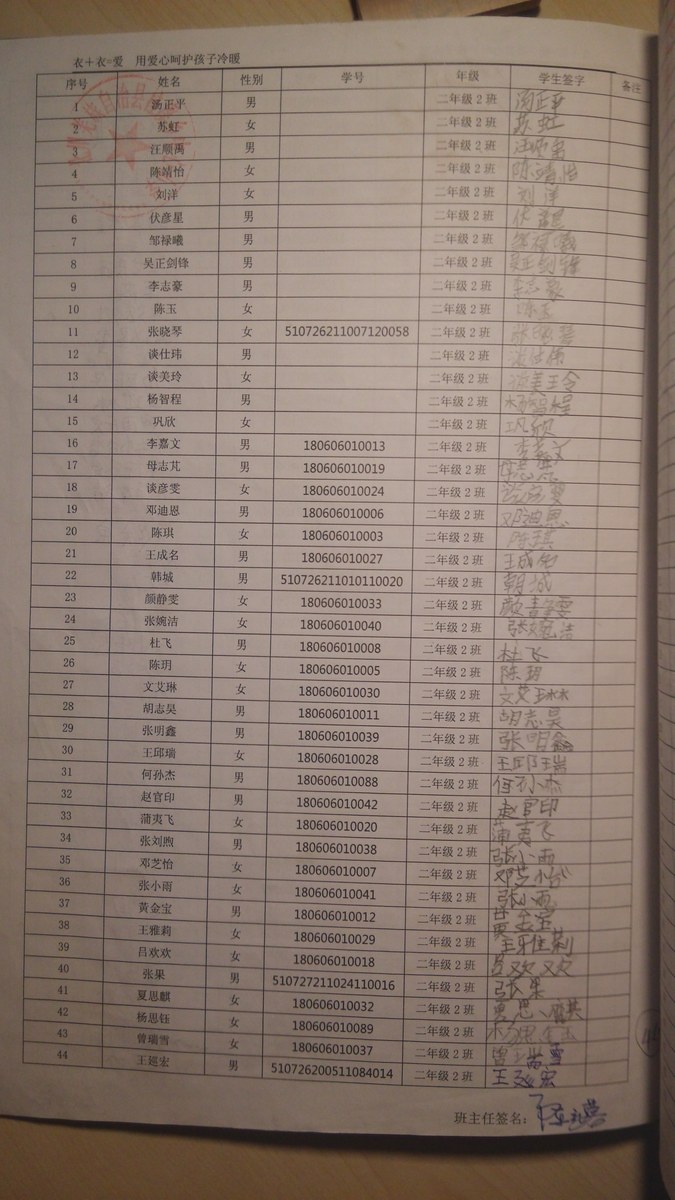 衣+衣=爱 用爱心呵护孩子冷暖
序号 姓名 性别 学号 年级 学生签字 备注
1 汤正平 男 二年级2班 汤正平
2 苏虹 女 二年级2班 苏虹
3 汪顺禹 男 二年级2班
4 陈靖怡 女 二年级2班 陈靖怡
5 刘洋 女 二年级2班 刘洋
6 伏彦星 男 二年级2班
7 邹禄曦 男 二年级2班
8 吴正剑锋 男 二年级2班 吴正剑锋
9 李志豪 男 二年级2班 李志豪
10 陈玉 女 二年级2班 陈玉
11 张晓琴 女 510726211007120058 二年级2班
12 谈仕玮 男 二年级2班
13 谈美玲 女 二年级2班 谈美玲
14 杨智程 男 二年级2班 杨智程
15 巩欣 女 二年级2班 巩欣
16 李嘉文 男 180606010013 二年级2班 李嘉文
17 母志芃 男 180606010019 二年级2班
18 谈彦雯 女 180606010024 二年级2班
19 邓迪恩 男 180606010006 二年级2班 邓迪恩
20 陈琪 女 180606010003 二年级2班 陈琪
21 王成名 男 180606010027 二年级2班 王成名
22 韩城 男 510726211010110020 二年级2班
23 颜静雯 女 180606010033 二年级2班
24 张婉洁 女 180606010040 二年级2班 张婉洁
25 杜飞 男 180606010008 二年级2班 杜飞
26 陈玥 女 180606010005 二年级2班 陈玥
27 文艾琳 女 180606010030 二年级2班 文艾琳
28 胡志昊 男 180606010011 二年级2班 胡志昊
29 张明鑫 男 180606010039 二年级2班 张明鑫
30 王邱瑞 女 180606010028 二年级2班 王邱瑞
31 何孙杰 男 180606010088 二年级2班 何孙杰
32 赵官印 男 180606010042 二年级2班 赵官印
33 蒲夷飞 女 180606010020 二年级2班 蒲夷飞
34 张刘煦 男 180606010038 二年级2班 张小雨
35 邓芝怡 女 180606010007 二年级2班 邓芝怡
36 张小雨 女 180606010041 二年级2班 张小雨
37 黄金宝 男 180606010012 二年级2班 黄金宝
38 王雅莉 女 180606010029 二年级2班 王雅莉
39 吕欢欢 女 180606010018 二年级2班 吕欢欢
40 张果 男 510727211024110016 二年级2班 张果
41 夏思麒 女 180606010032 二年级2班 夏思麒
42 杨思钰 女 180606010089 二年级2班 杨思钰
43 曾瑞雪 女 180606010037 二年级2班 曾瑞雪
44 王廷宏 男 510726200511084014 二年级2班 王廷宏
班主任签名: